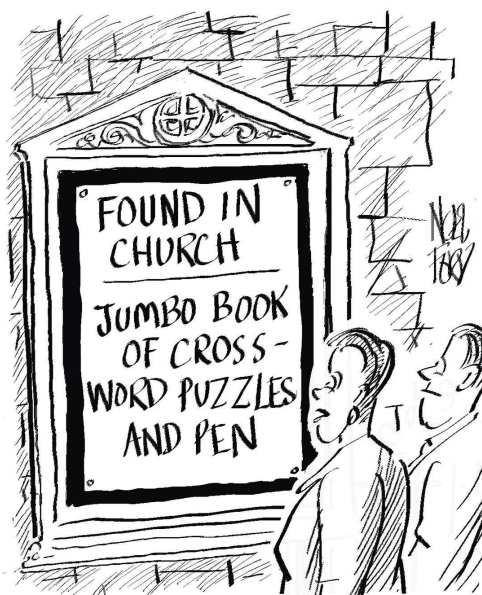 FOUND IN
CHURCH
JUMBO BOOK
OF CROSS-
WORD PUZZLES
AND PEN